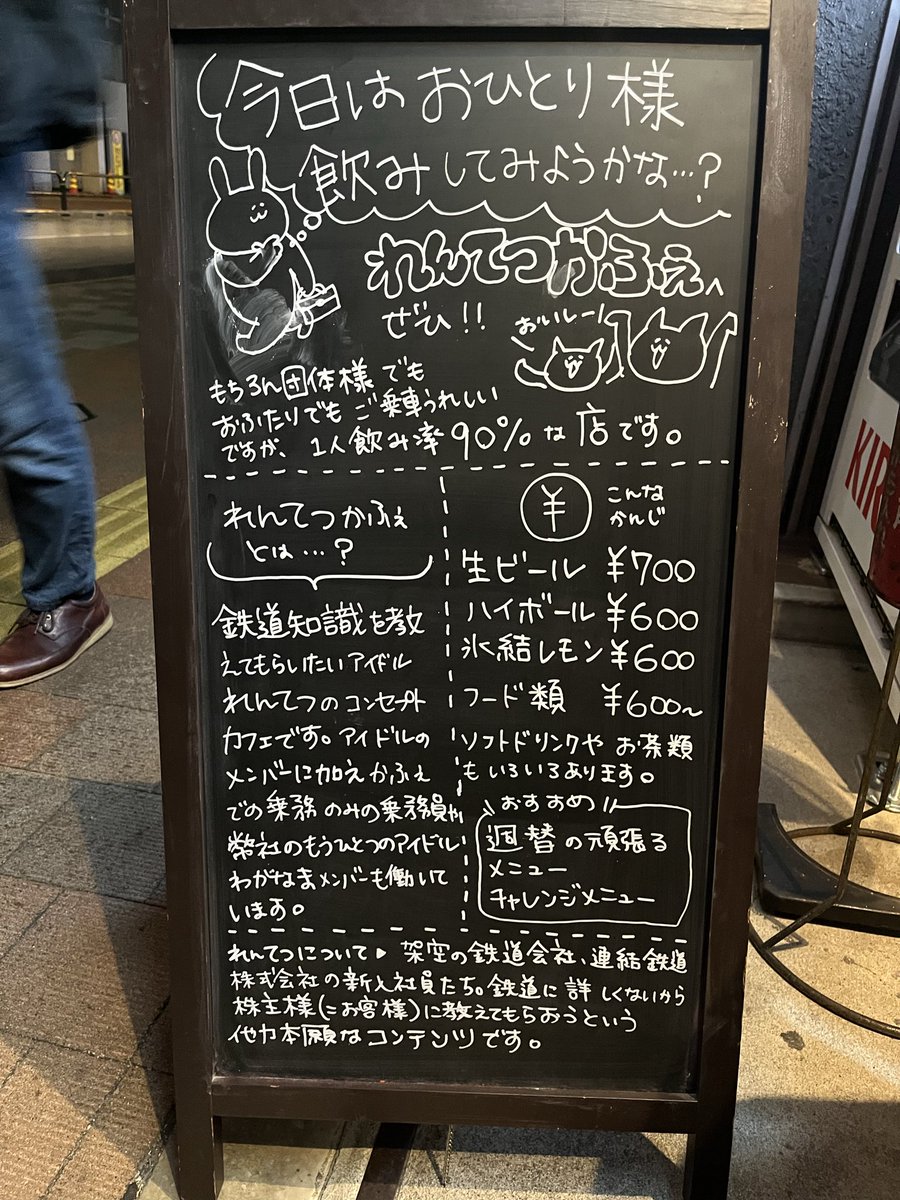 今日は おひとり様
飲みしてみようかな…?
れんてつかふぇへ
ぜひ!!
おいしー!
もちろん団体様でも
おふたりでもご乗車うれしい
ですが、1人飲み率90%な店です。
れんてつかふぇ
とは…?
鉄道知識を教
えてもらいたいアイドル
れんてつのコンセプト
カフェです。アイドルの
メンバーに加えかふぇ
での乗務のみの乗務員や
弊社のもうひとつのアイドル
わがなまメンバーも働いて
います。
¥ こんな
かんじ
生ビール ¥700
ハイボール ¥600
氷結レモン ¥600
フード類 ¥600~
ソフトドリンクや お茶類
もいろいろあります。
\おすすめ/
週替の頑張る
メニュー
チャレンジメニュー
れんてつについて▶ 架空の鉄道会社、連結鉄道
株式会社の新入社員たち。鉄道に詳しくないから
株主様(=お客様)に教えてもらおうという
他力本願なコンテンツです。